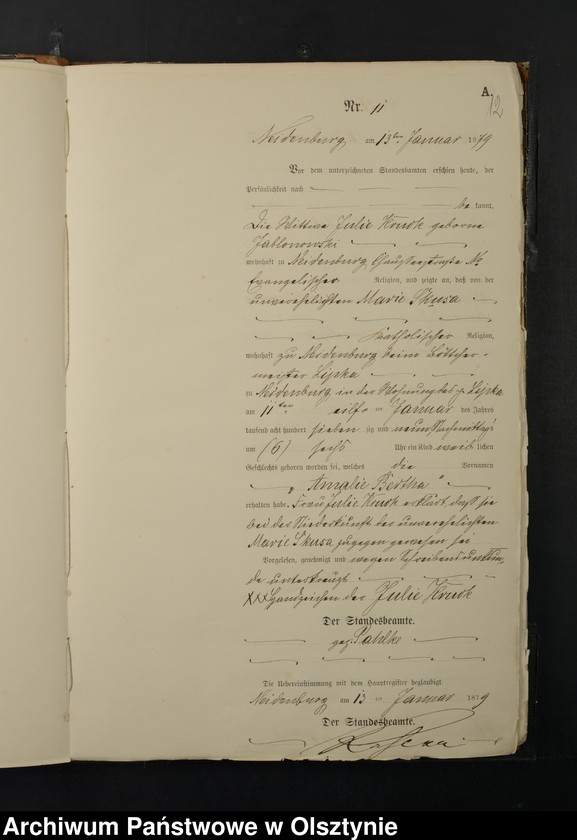 A.
12
Nr. 11
Neidenburg am 13ten Januar 1879
Vor dem unterzeichneten Standesbeamten erschien heute, der
Persönlichkeit nach
be kannt,
Die Wittwe Julie Krusk geborne
Jablonowski
wohnhaft zu Neidenburg No
Evangelischer Religion, und zeigte an, daß von der
unverehelichten Marie Skusa
Katholischer Religion,
wohnhaft zu Neidenburg beim Böttcher-
meister Lipka
zu Neidenburg in der Wohnung des p. Lipka
am 11ten eilf ten Januar des Jahres
tausend acht hundert sieben zig und neun Nachmittags
um (6) sechs Uhr ein Kind weib lichen
Geschlechts geboren worden sei, welches die Vornamen
„Amalie Bertha"
erhalten habe. Frau Julie Krusk erklärt, daß sie
bei der Niederkunft der unverehelichten
Marie Skusa zugegen gewesen sei
Vorgelesen, genehmigt und wegen Schreibensunkun-
de unterkreuzt
XXX Handzeichen der Julie Krusk
Der Standesbeamte.
gez. Pahlke
Die Uebereinstimmung mit dem Hauptregister beglaubigt
Neidenburg am 13 ten Januar 1879
Der Standesbeamte.
Archiwum Państwowe w Olsztynie